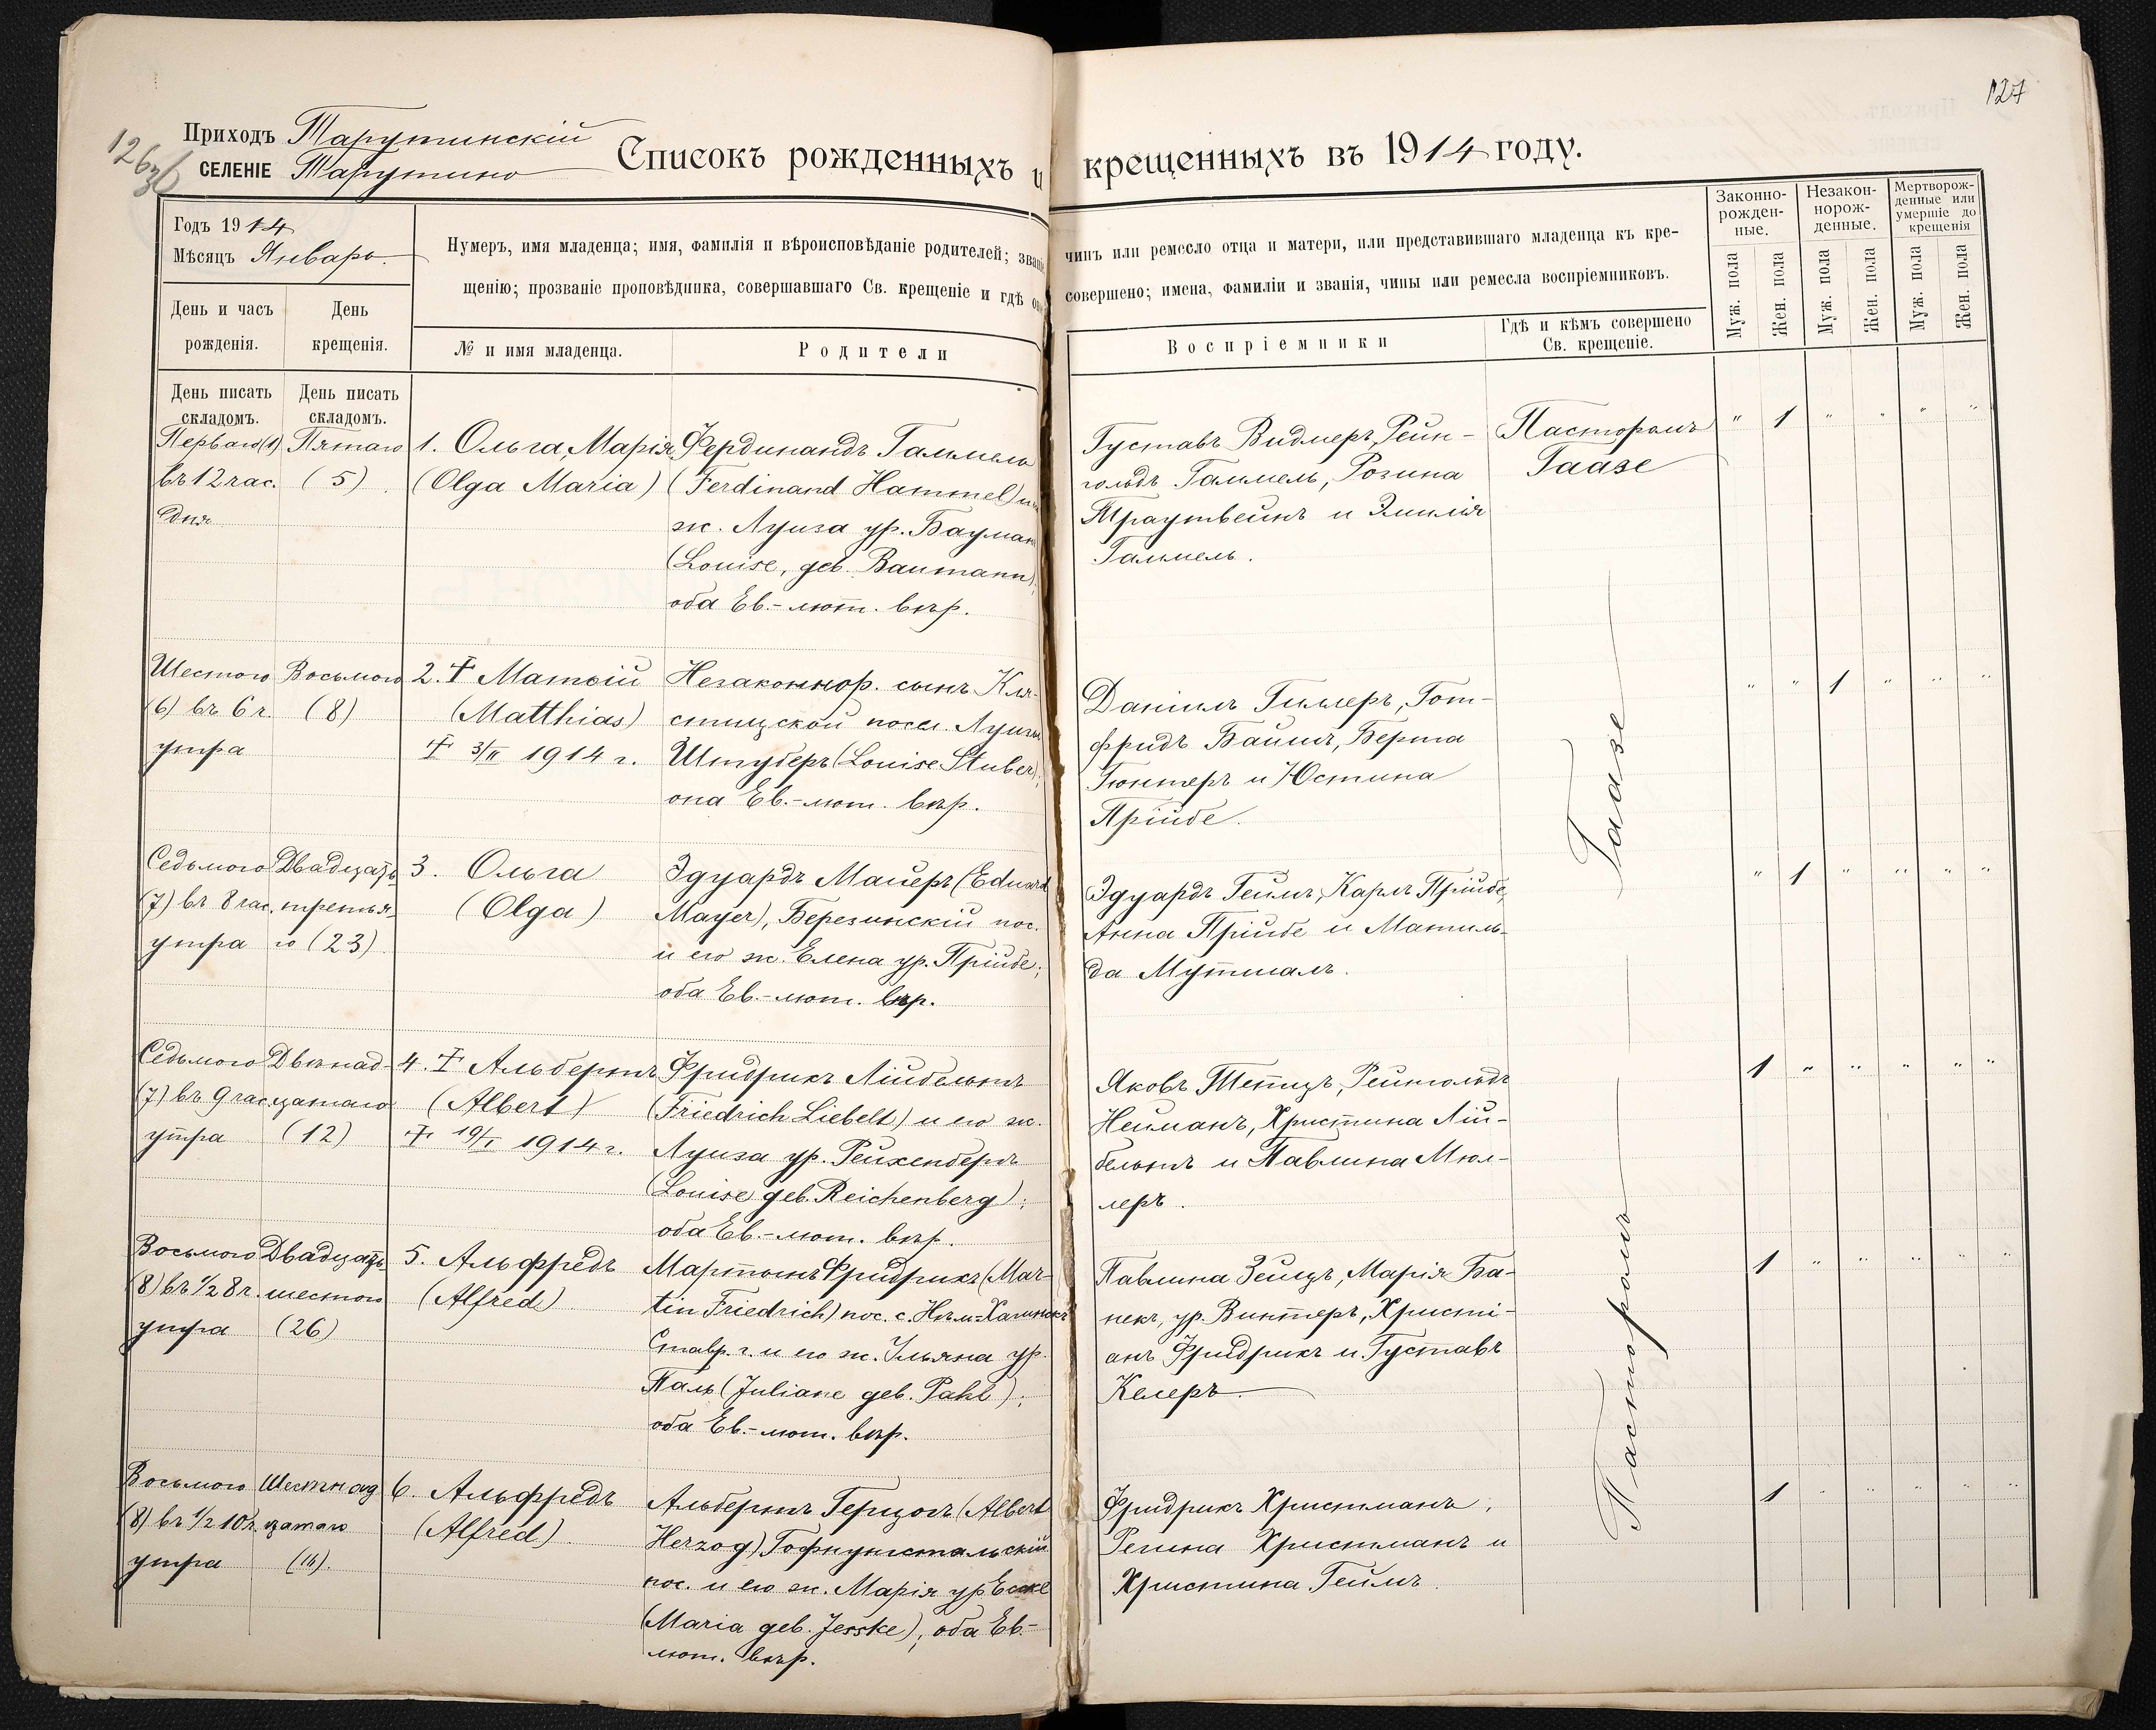 127
126 об
Приходъ Тарутинскій
СЕЛЕНІЕ Тарутино
Списокъ рожденныхъ и крещенныхъ въ 1914 году.
Годъ 1914
Мѣсяцъ Январь.
День и часъ рожденія.
День крещенія.
Нумеръ, имя младенца; имя, фамилія и вѣроисповѣданіе родителей; званіе чинъ или ремесло отца и матери, или представившаго младенца къ кре-
щенію; прозваніе проповѣдника, совершавшаго Св. крещеніе и гдѣ оно совершено; имена, фамиліи и званія, чины или ремесла воспріемниковъ.
№ и имя младенца.
Родители
Воспріемники
Гдѣ и кѣмъ совершено
Св. крещеніе.
Законно-
рожден-
ные.
Незакон-
норож-
денные.
Мертворож-
денные или
умершіе до
крещенія
Муж. пола
Жен. пола
Муж. пола
Жен. пола
Муж. пола
Жен. пола
День писать
складомъ.
День писать
складомъ.
Перваго (1)
въ 12 час.
дня
Пятаго
(5)
1. Ольга, Марія
(Olga Maria)
Фердинандъ Гаммель
(Ferdinand Hammel) и
ж. Луиза ур. Бауман
(Louise, geb. Baumann);
оба Ев.-лют. вѣр.
Густавъ Видмеръ, Рейн-
гольдъ Гаммель, Розина
Траутвейнъ и Эмилія
Гаммель.
Пасторомъ
Гаазе
" 1 " " " "
Шестого
(6) въ 6 ч.
утра
Восьмого
(8)
2. † Матѳій
(Matthias)
† 3/II 1914 г.
Незаконнор. сынъ Кля-
стицской посел. Луизы
Штуберъ (Louise Stuber);
она Ев.-лют. вѣр.
Даніилъ Гиллеръ, Гот-
фридъ Баишъ, Берта
Гюнтеръ и Юстина
Прійбе.
" " 1 " " "
Седьмого
(7) въ 8 час.
утра
Двадцать
третья-
го (23)
3. Ольга
(Olga)
Эдуардъ Маиеръ (Eduard
Mayer), Березинскій пос.
и его ж. Елена ур. Прійбе;
оба Ев.-лют. вѣр.
Эдуардъ Геймъ, Карлъ Прійбе,
Анна Прійбе и Матиль-
да Мутшалъ.
" 1 " " " "
Седьмого
(7) въ 9 час.
утра
Двѣнад-
цатаго
(12)
4. † Альбертъ
(Albert)
† 19/I 1914 г.
Фридрихъ Лійбельтъ
(Friedrich Liebelt) и его ж.
Луиза ур. Рейхенбергъ
(Louise geb. Reichenberg);
оба Ев.-лют. вѣр.
Яковъ Тетцъ, Рейнгольдъ
Нейманъ, Христина Лій-
бельтъ и Павлина Мюл-
леръ.
1 " " " " "
Восьмого
(8) въ 1/2 8 ч.
утра
Двадцать
шестого
(26)
5. Альфредъ
(Alfred)
Мартынъ Фридрихъ (Mar-
tin Friedrich) пос. с. Нѣм.-Хагинскъ
Ставр. г. и его ж. Ульяна ур.
Паль (Juliane geb. Pahl);
оба Ев.-лют. вѣр.
Павлина Зейцъ, Марія Ба-
некъ, ур. Винтеръ, Христі-
анъ Фридрихъ и Густавъ
Келеръ.
1 " " " " "
Восьмого
(8) въ 1/2 10 ч.
утра
Шестнад
цатаго
(16).
6. Альфредъ
(Alfred)
Альбертъ Герцогъ (Albert
Herzog) Гофнунгстальскій
пос. и его ж. Марія ур. Еске
(Maria geb. Jesske); оба Ев.-
лют. вѣр.
Фридрихъ Христманъ,
Регина Христманъ и
Христина Геймъ.
1 " " " " "
Пасторомъ Гаазе